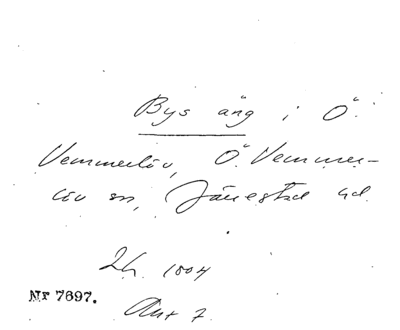 Bys äng i Ö.
Vemmerlöv, Ö. Vemmer-
löv sn, Järrestad hd.
Lh. 1004
Nr 7697.
Ant 7.